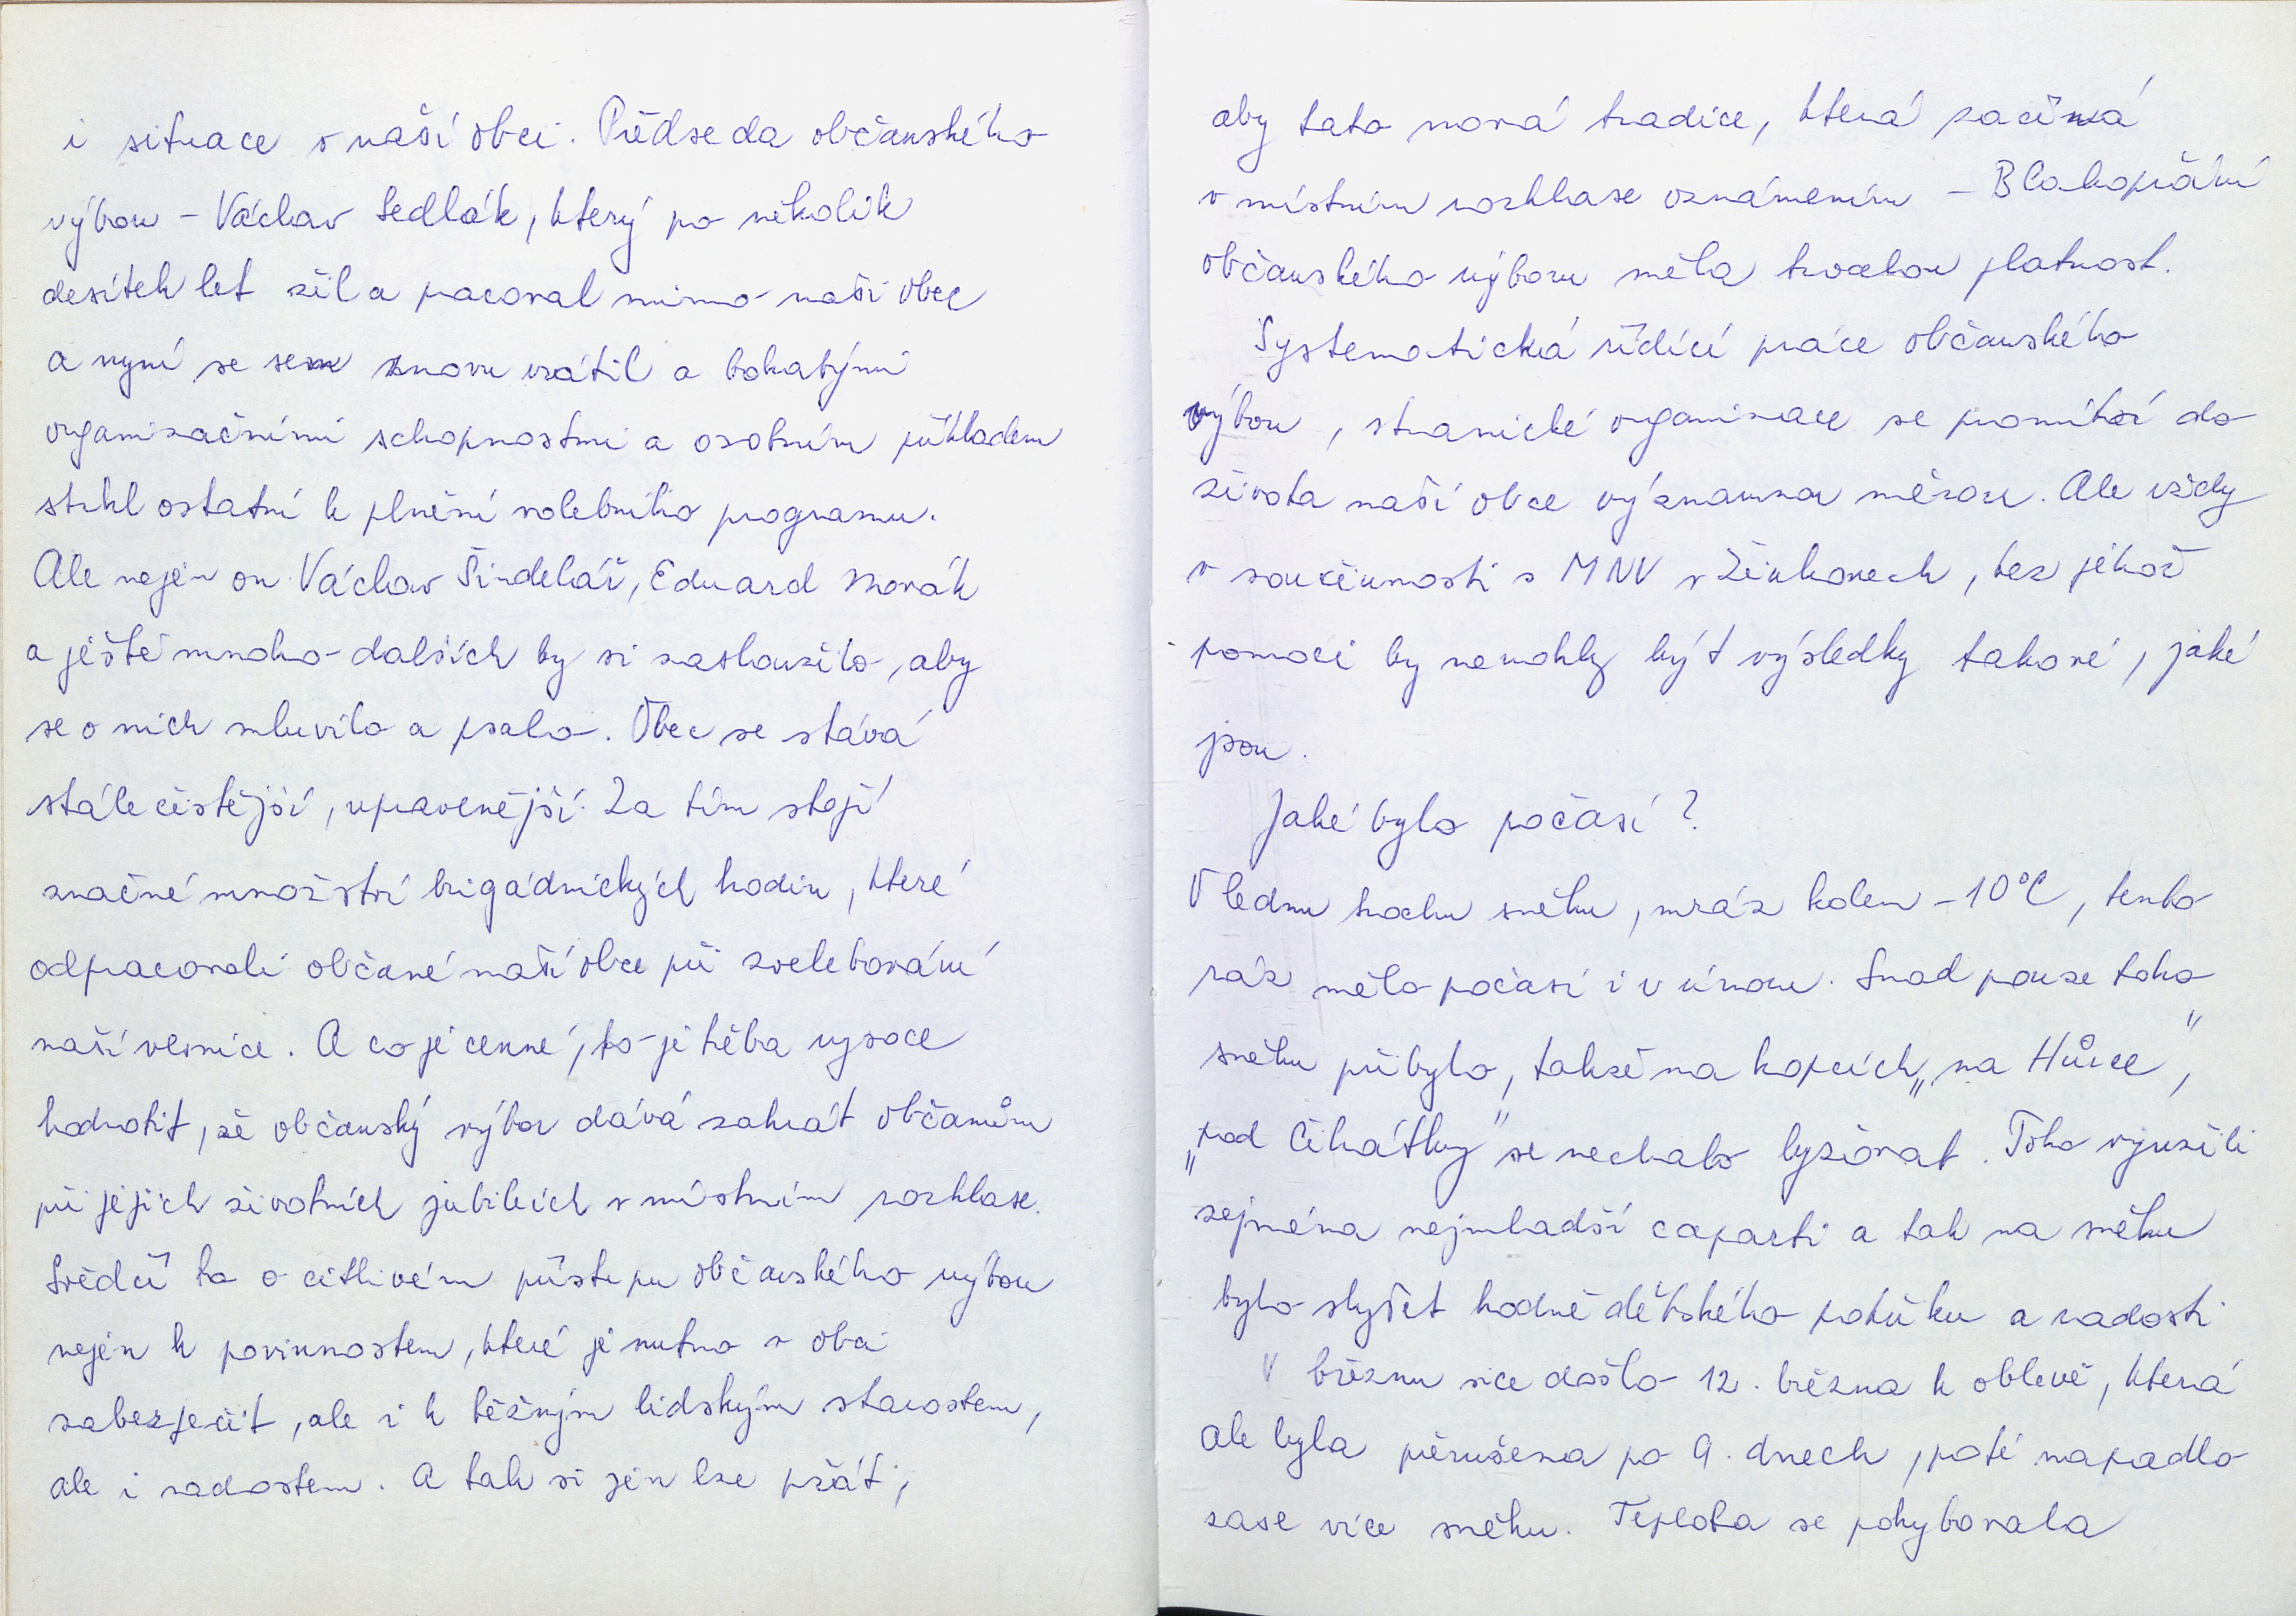 i situace v naší obci. Předseda občanského
výboru - Václav Sedlák, který po několik
desítek let žil a pracoval mimo naši obec
a nyní se sem znovu vrátil a bohatými
organizačními schopnostmi a osobním příkladem
strhl ostatní k plnění volebního programu.
Ale nejen on Václav Šindelář, Eduard Novák
a ještě mnoho dalších by si zasloužilo, aby
se o nich mluvilo a psalo. Obec se stává
stále čistější, upravenější. Za tím stojí
značné množství brigádnických hodin, které
odpracovali občané naší obce při zvelebování
naší vesnice. A co je cenné, to je třeba vysoce
hodnotit, že občanský výbor dává zahrát občanům
při jejich životních jubileích v místním rozhlase.
Svědčí to o citlivém přístupu občanského výboru
nejen k povinnostem, které je nutno v obci
zabezpečit, ale i k běžným lidským starostem,
ale i radostem. A tak si jen lze přát,
aby tato nová tradice, která začíná
v místním rozhlase oznámením - Blahopřání
občanského výboru měla trvalou platnost.
Systematická řídící práce občanského
výboru, stranické organizace se promítá do
života naší obce významnou měrou. Ale vždy
v součinnosti s MNV v Žinkovech, bez jehož
pomoci by nemohly být výsledky takové, jaké
jsou.
Jaké bylo počasí?
V lednu trochu sněhu, mráz kolem -10°C, tento
ráz mělo počasí i v únoru. Snad pouze toho
sněhu přibylo, takže na kopcích „na Hůrce",
„pod Čihátky" se nechalo lyžovat. Toho využili
zejména nejmladší caparti a tak na sněhu
bylo slyšet hodně dětského pokřiku a radosti
V březnu sice došlo 12. března k oblevě, která
ale byla přerušena po 9. dnech, poté napadlo
zase více sněhu. Teplota se pohybovala